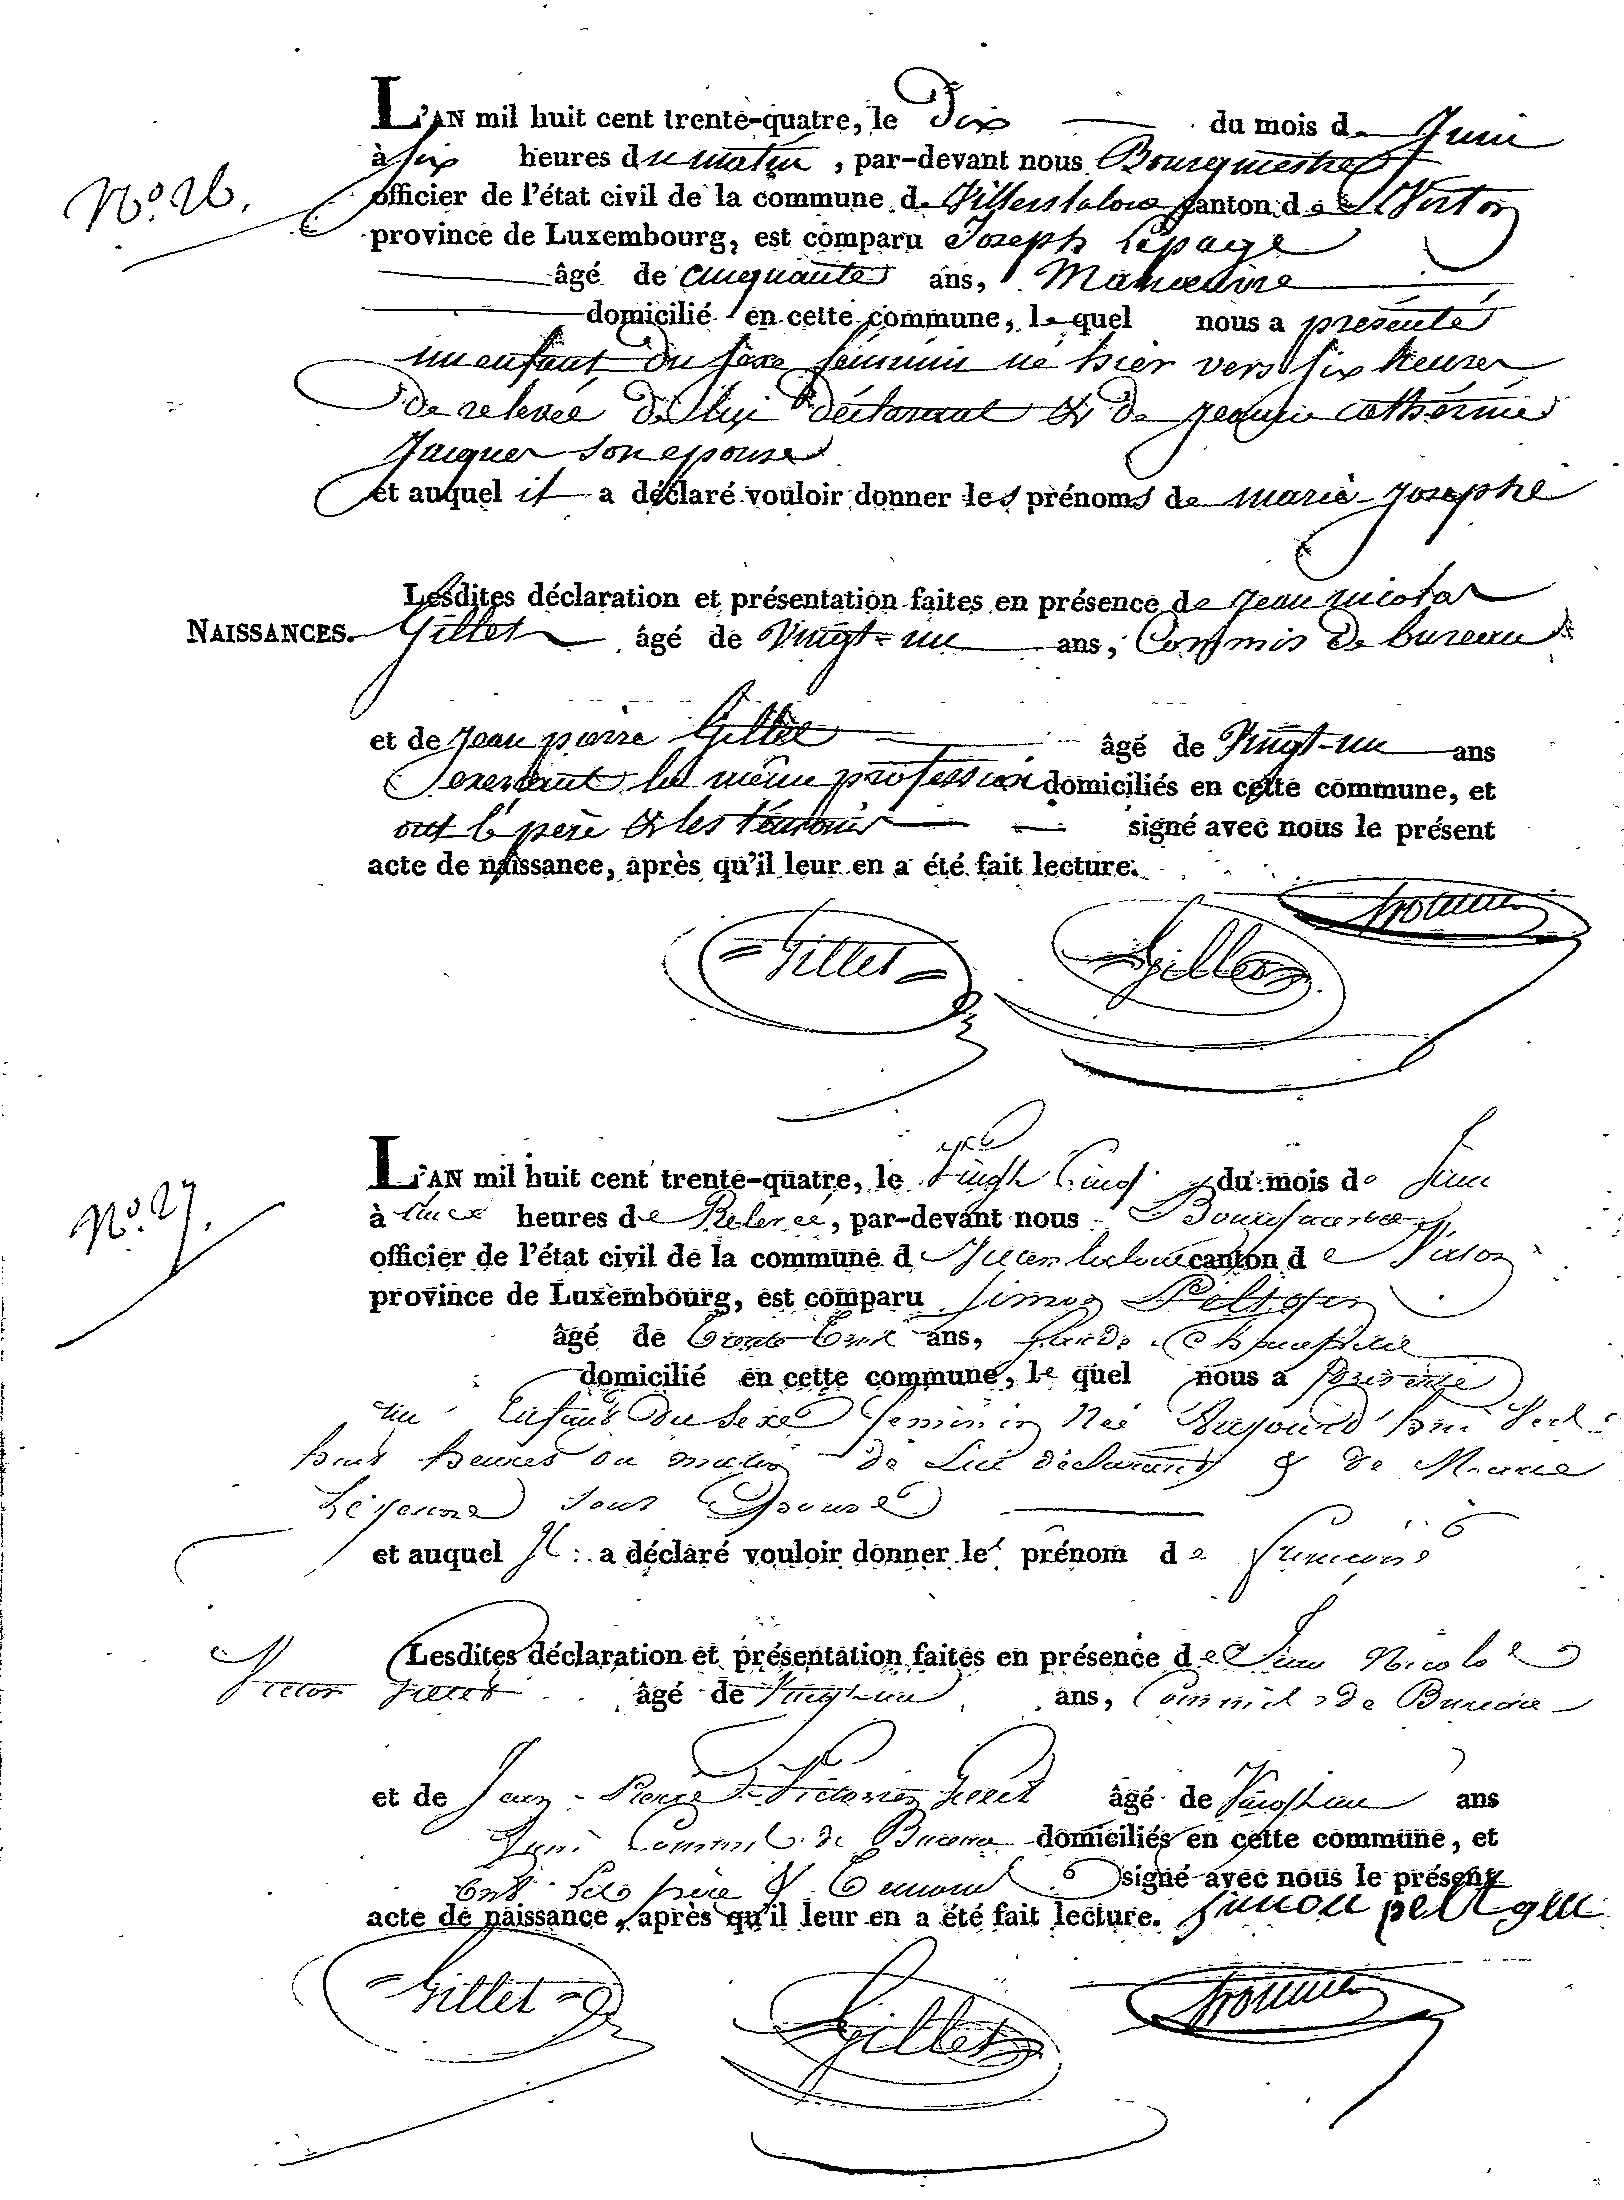 L'AN mil huit cent trente-quatre, le Dix du mois de Juin
N.° 26.
à six heures du matin, par-devant nous Bourgmestre
officier de l'état civil de la commune de Villers la loue canton de Virton
province de Luxembourg, est comparu Joseph Lepage
âgé de cinquante ans, Manœuvre
domicilié en cette commune, lequel nous a présenté
un enfant du sexe féminin né hier vers six heures
de relevée de lui déclarant & de Jeanne Catherine
Jacques son epouse
et auquel il a déclaré vouloir donner les prénoms de marie-Josephe
Lesdites déclaration et présentation faites en présence de Jean nicolas
NAISSANCES. Gillet âgé de Vingt-un ans, Commis de bureau
et de Jean pierre Gillet âgé de Vingt-un ans
exerçant la même profession domiciliés en cette commune, et
ont le père & les témoins signé avec nous le présent
acte de naissance, après qu'il leur en a été fait lecture.
Gillet Gillet
L'AN mil huit cent trente-quatre, le Vingt Cinq du mois de Juin
N.° 27.
à heures de Relevée, par-devant nous Bourgmestre
officier de l'état civil de la commune de Villers la loue canton de Virton
province de Luxembourg, est comparu Simon Peltgen
âgé de ans, Garde Champetre
domicilié en cette commune, le quel nous a présenté
un Enfant du Sexe feminin Né aujourd'hui
huit heures du matin de Lui déclarant & de Marie
Lejeune Son Epouse
et auquel Il a déclaré vouloir donner le prénom de
Lesdites déclaration et présentation faites en présence de Jean Nicolas
Victor Gillet âgé de Vingt-un ans, Commis de Bureau
et de Jean-Pierre Victorien Gillet âgé de Vingt un ans
Commis de Bureau domiciliés en cette commune, et
Ont Les père & Temoins signé avec nous le présent
acte de naissance, après qu'il leur en a été fait lecture. simon peltgen
Gillet Gillet